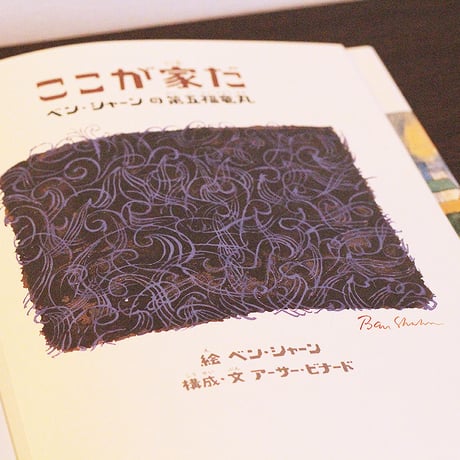 ここが家だ
ベン・シャーンの第五福竜丸
Ben Shahn
絵 ベン・シャーン
構成・文 アーサー・ビナード